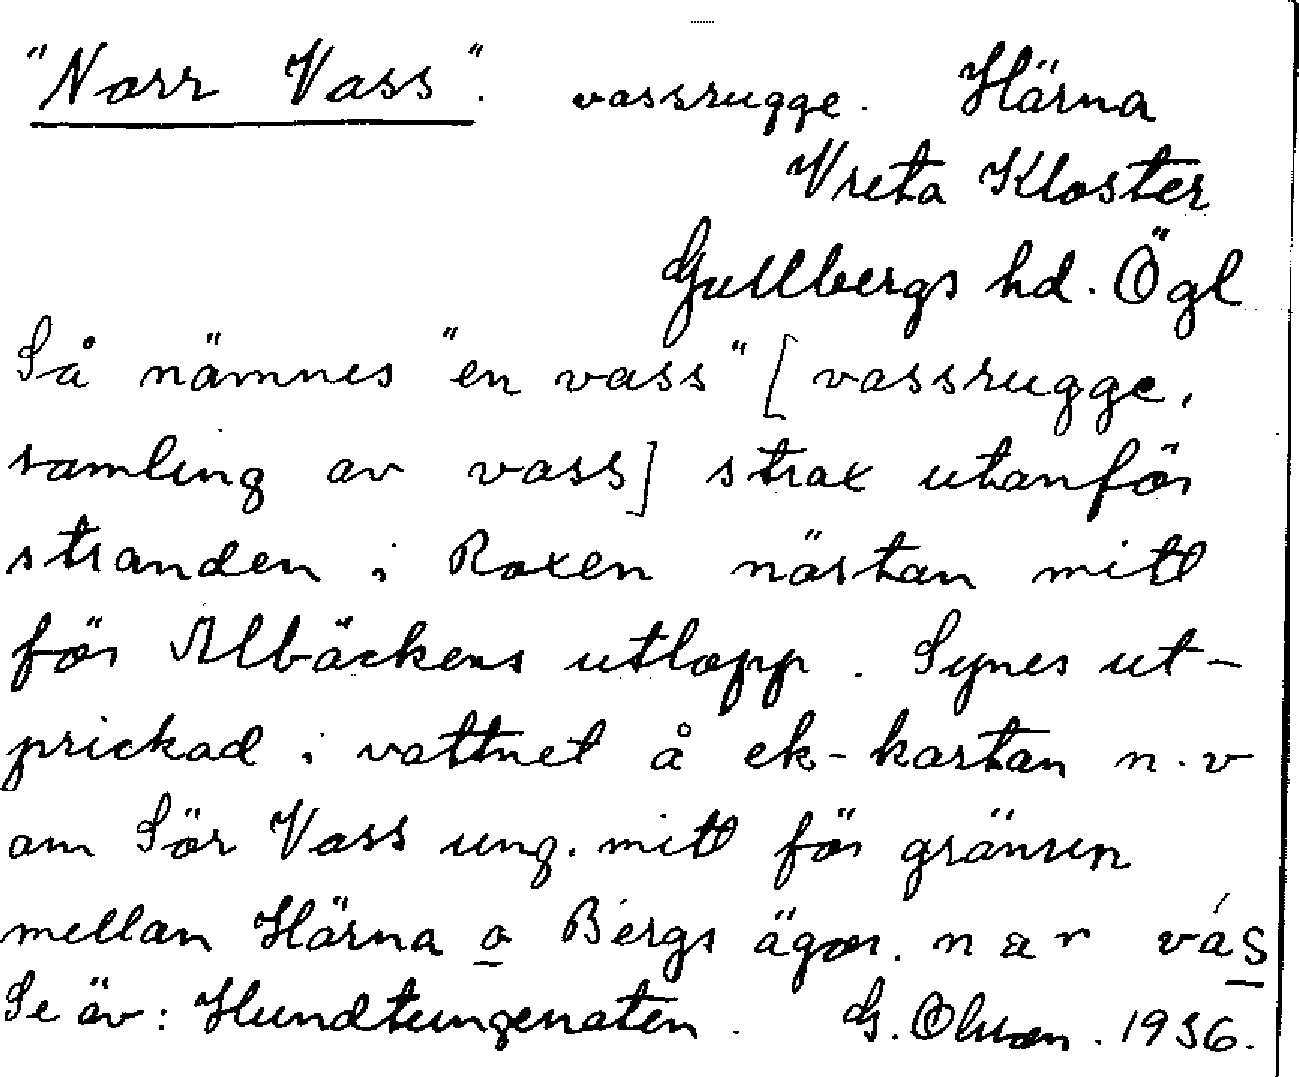 "Norr Vass". vassrugge. Härna
Vreta Kloster
Gullbergs hd. Ögl
Så nämnes "en vass" [vassrugge,
samling av vass] strax utanför
stranden i Roxen nästan mitt
för Albäckens utlopp. Synes ut-
prickad i vattnet å ek-kartan n.v
om Sör Vass ung. mitt för gränsen
mellan Härna o Bergs ägor. nar vás
Se äv: Hundtungenaten. G. Olson. 1936.